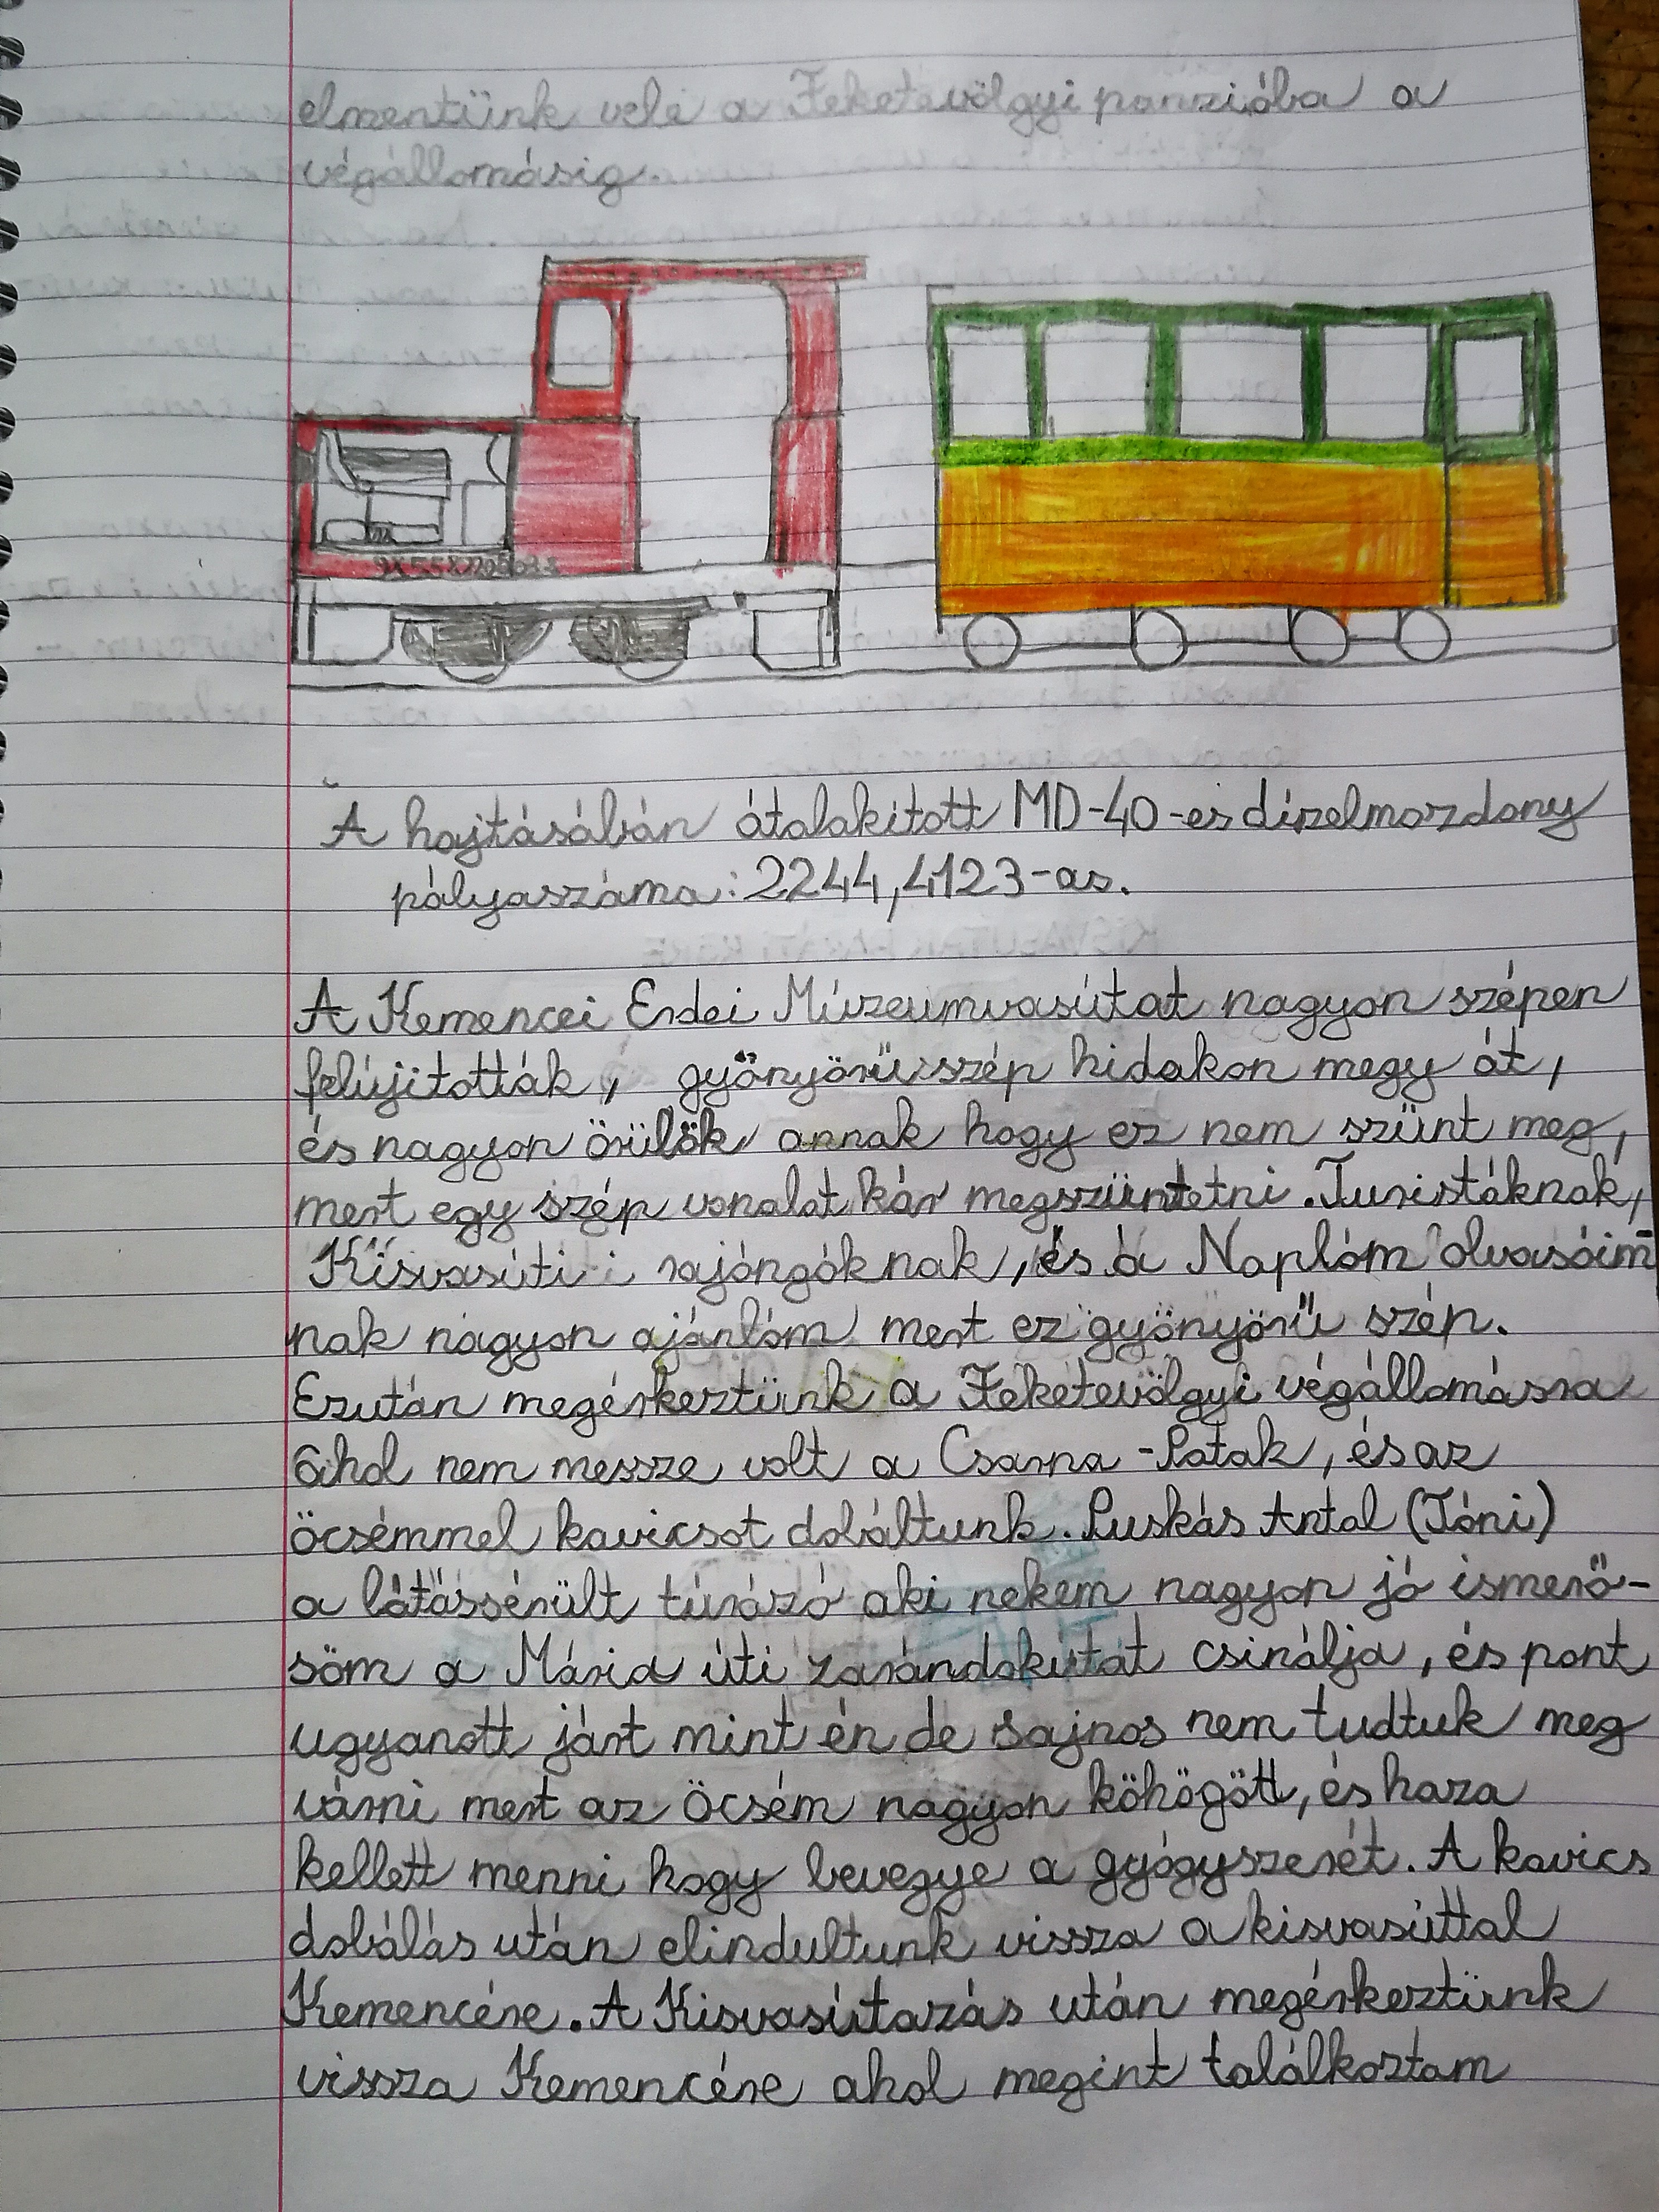 elmentünk vele a Feketevölgyi panzióba a
végállomásig.
A hajtásában átalakított MD-40-es dízelmozdony
pályaszáma: 2244,4123-as.
A Kemencei Erdei Múzeumvasútat nagyon szépen
felújították, gyönyörű szép hidakon megy át,
és nagyon örülök annak hogy ez nem szűnt meg,
mert egy szép vonalat kár megszüntetni. Turistáknak,
Kisvasúti rajongóknak, és a Naplóm olvasóim-
nak nagyon ajánlom mert ez gyönyörű szép.
Ezután megérkeztünk a Feketevölgyi végállomásra
ahol nem messze volt a Csarna-Patak, és az
öcsémmel kavicsot dobáltunk. Puskás Antal (Tóni)
a látássérült túrázó aki nekem nagyon jó ismerő-
söm a Mária úti zarándokútat csinálja, és pont
ugyanott járt mint én de sajnos nem tudtuk meg
várni mert az öcsém nagyon köhögött, és haza
kellett menni hogy bevegye a gyógyszerét. A kavics
dobálás után elindultunk vissza a kisvasúttal
Kemencére. A Kisvasútazás után megérkeztünk
vissza Kemencére ahol megint találkoztam